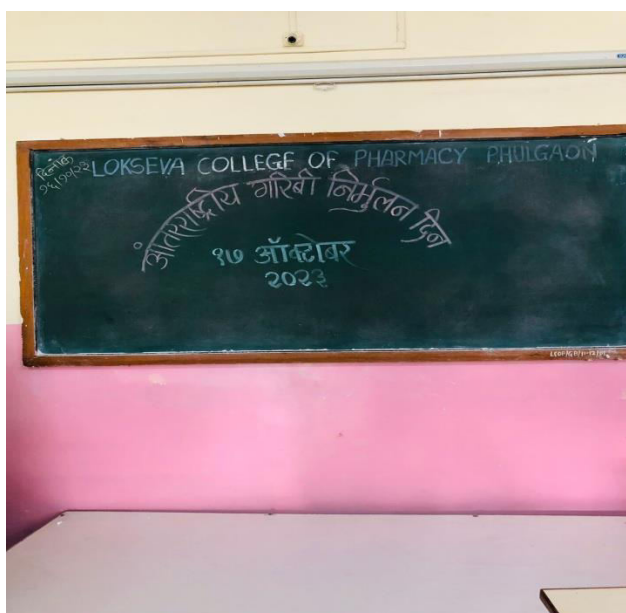 दिनांक
१६/१०/२३
LOKSEVA COLLEGE OF PHARMACY PHULGAON
आंतरराष्ट्रीय गरिबी निर्मुलन दिन
१७ ऑक्टोबर
२०२३